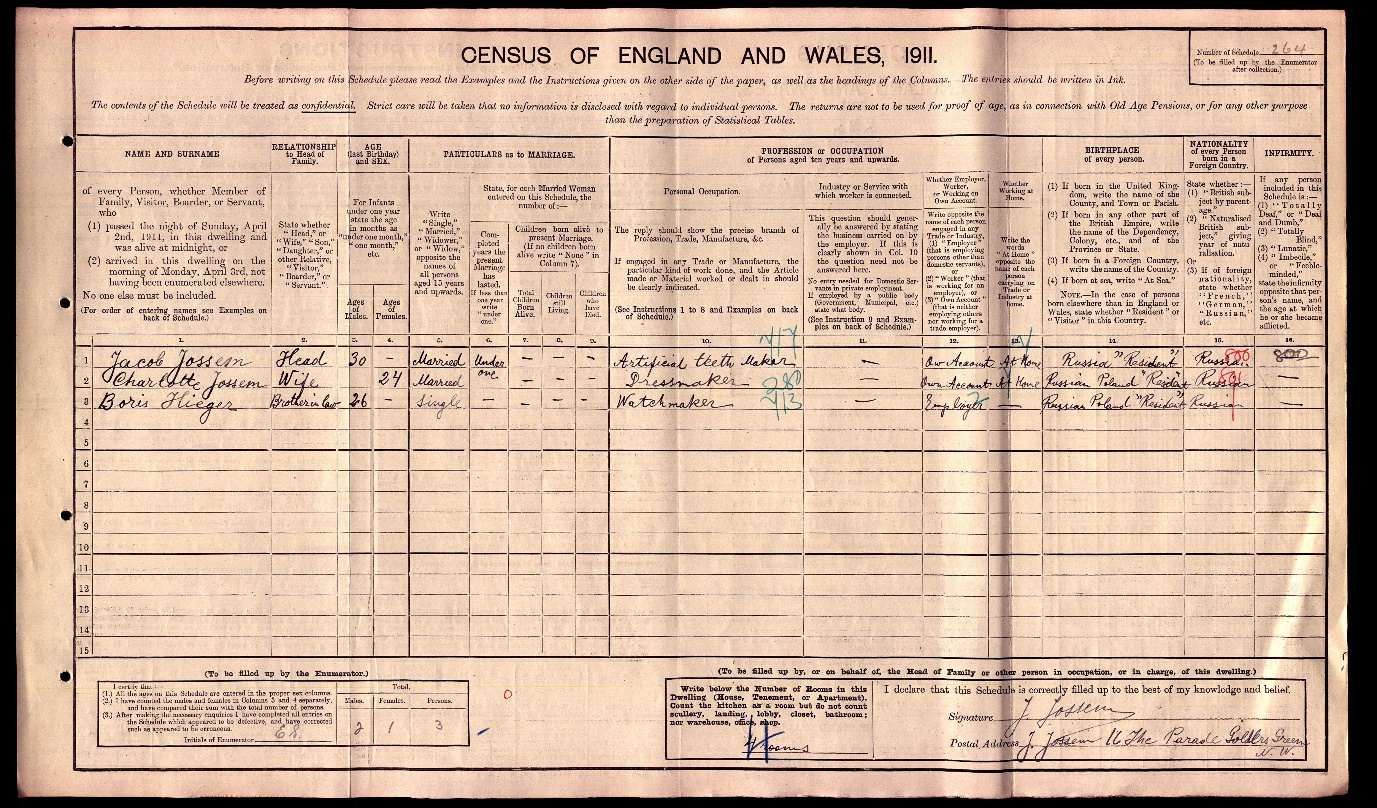 CENSUS OF ENGLAND AND WALES, 1911.
Number of Schedule 264
(To be filled up by the Enumerator
after collection.)
Before writing on this Schedule please read the Examples and the Instructions given on the other side of the paper, as well as the headings of the Columns. The entries should be written in Ink.
The contents of the Schedule will be treated as confidential. Strict care will be taken that no information is disclosed with regard to individual persons. The returns are not to be used for proof of age, as in connection with Old Age Pensions, or for any other purpose
than the preparation of Statistical Tables.
NAME AND SURNAME
of every Person, whether Member of
Family, Visitor, Boarder, or Servant,
who
(1) passed the night of Sunday, April
2nd, 1911, in this dwelling and
was alive at midnight, or
(2) arrived in this dwelling on the
morning of Monday, April 3rd, not
having been enumerated elsewhere.
No one else must be included.
(For order of entering names see Examples on
back of Schedule.)
RELATIONSHIP
to Head of
Family.
State whether
"Head," or
"Wife," "Son,"
"Daughter," or
other Relative,
"Visitor,"
"Boarder," or
"Servant."
AGE
(last Birthday)
and SEX.
For Infants
under one year
state the age
in months as
"under one month,"
"one month,"
etc.
Ages
of
Males.
Ages
of
Females.
PARTICULARS as to MARRIAGE.
Write
"Single,"
"Married,"
"Widower,"
or "Widow,"
opposite the
names of
all persons
aged 15 years
and upwards.
State, for each Married Woman
entered on this Schedule, the
number of :—
Completed
years the
present
Marriage
has
lasted.
If less than
one year
write
"under
one."
Children born alive to
present Marriage.
(If no children born
alive write "None" in
Column 7).
Total
Children
Born
Alive.
Children
still
Living.
Children
who
have
Died.
PROFESSION or OCCUPATION
of Persons aged ten years and upwards.
Personal Occupation.
The reply should show the precise branch of
Profession, Trade, Manufacture, &c.
If engaged in any Trade or Manufacture, the
particular kind of work done, and the Article
made or Material worked or dealt in should
be clearly indicated.
(See Instructions 1 to 8 and Examples on back
of Schedule.)
Industry or Service with
which worker is connected.
This question should generally
be answered by stating
the business carried on by
the employer. If this is
clearly shown in Col. 10
the question need not be
answered here.
No entry needed for Domestic Servants
in private employment.
If employed by a public body
(Government, Municipal, etc.)
state what body.
(See Instruction 9 and Examples
on back of Schedule.)
Whether Employer,
Worker,
or Working on
Own Account.
Write opposite the
name of each person
engaged in any
Trade or Industry,
(1) "Employer"
(that is employing
persons other than
domestic servants),
or
(2) "Worker" (that
is working for an
employer), or
(3) "Own Account"
(that is neither
employing others
nor working for a
trade employer).
Whether
Working at
Home.
Write the
words
"At Home"
opposite the
name of each
person
carrying on
Trade or
Industry at
home.
BIRTHPLACE
of every person.
(1) If born in the United Kingdom,
write the name of the
County, and Town or Parish.
(2) If born in any other part of
the British Empire, write
the name of the Dependency,
Colony, etc., and of the
Province or State.
(3) If born in a Foreign Country,
write the name of the Country.
(4) If born at sea, write "At Sea."
NOTE.—In the case of persons
born elsewhere than in England or
Wales, state whether "Resident" or
"Visitor" in this Country.
NATIONALITY
of every Person
born in a
Foreign Country.
State whether :—
(1) "British subject
by parentage."
(2) "Naturalised
British subject,"
giving
year of naturalisation.
Or
(3) If of foreign
nationality,
state whether
"French,"
"German,"
"Russian,"
etc.
INFIRMITY.
If any person
included in this
Schedule is :—
(1) "Totally
Deaf," or "Deaf
and Dumb,"
(2) "Totally
Blind,"
(3) "Lunatic,"
(4) "Imbecile,"
or "Feeble-
minded,"
state the infirmity
opposite that person's
name, and
the age at which
he or she became
afflicted.
1. 2. 3. 4. 5. 6. 7. 8. 9. 10. 11. 12. 13. 14. 15. 16.
1 Jacob Jossem Head 30 – Married Under one – – – Artificial teeth Maker — Own Account At Home Russia "Resident" Russian
2 Charlotte Jossem Wife 24 Married – – – Dressmaker — Own Account At Home Russian Poland "Resident" Russian —
3 Boris Flieger Brother in law 26 Single – – – – Watchmaker — Employer — Russian Poland "Resident" Russian —
4
5
6
7
8
9
10
11
12
13
14
15
(To be filled up by the Enumerator.)
I certify that :—
(1.) All the ages on this Schedule are entered in the proper sex columns.
(2.) I have counted the males and females in Columns 3 and 4 separately,
and have compared their sum with the total number of persons.
(3.) After making the necessary enquiries I have completed all entries on
the Schedule which appeared to be defective, and have corrected
such as appeared to be erroneous.
Initials of Enumerator
Total.
Males. Females. Persons.
2 1 3
(To be filled up by, or on behalf of, the Head of Family or other person in occupation, or in charge, of this dwelling.)
Write below the Number of Rooms in this
Dwelling (House, Tenement, or Apartment).
Count the kitchen as a room but do not count
scullery, landing, lobby, closet, bathroom;
nor warehouse, office, shop.
4 rooms
I declare that this Schedule is correctly filled up to the best of my knowledge and belief.
Signature J. Jossem
Postal Address J. Jossem 16 The Parade Golders Green
N. W.